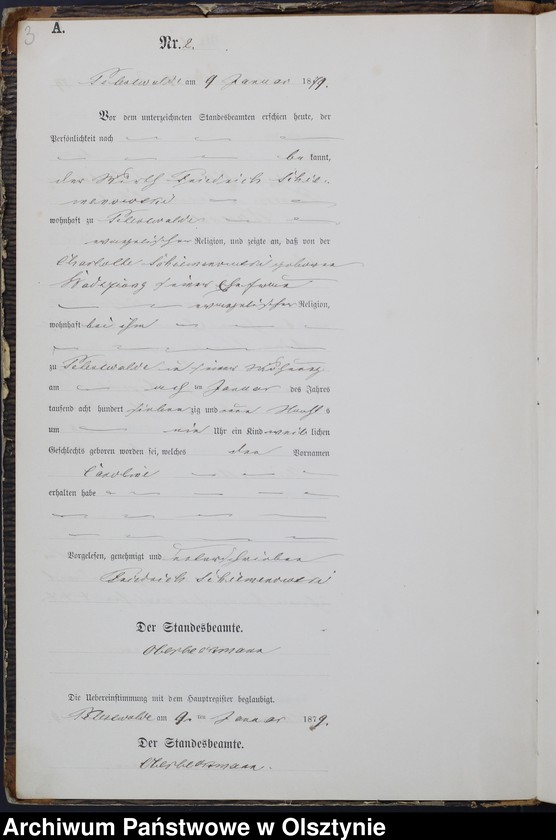 3
A.
Nr. 2.
am 9 Januar 1879.
Vor dem unterzeichneten Standesbeamten erschien heute, der
Persönlichkeit nach
be kannt,
der Wirth Friedrich
wohnhaft zu
evangelischer Religion, und zeigte an, daß von der
Charlotte geborene
seiner Ehefrau
evangelischer Religion,
wohnhaft bei ihm
zu in seiner Wohnung
am ten Januar des Jahres
tausend acht hundert siebenzig und neun Nachts
um ein Uhr ein Kind weiblichen
Geschlechts geboren worden sei, welches den Vornamen
Caroline
erhalten habe
Vorgelesen, genehmigt und unterschrieben
Friedrich
Der Standesbeamte.
Die Uebereinstimmung mit dem Hauptregister beglaubigt.
am 9. ten Januar 1879.
Der Standesbeamte.
Archiwum Państwowe w Olsztynie